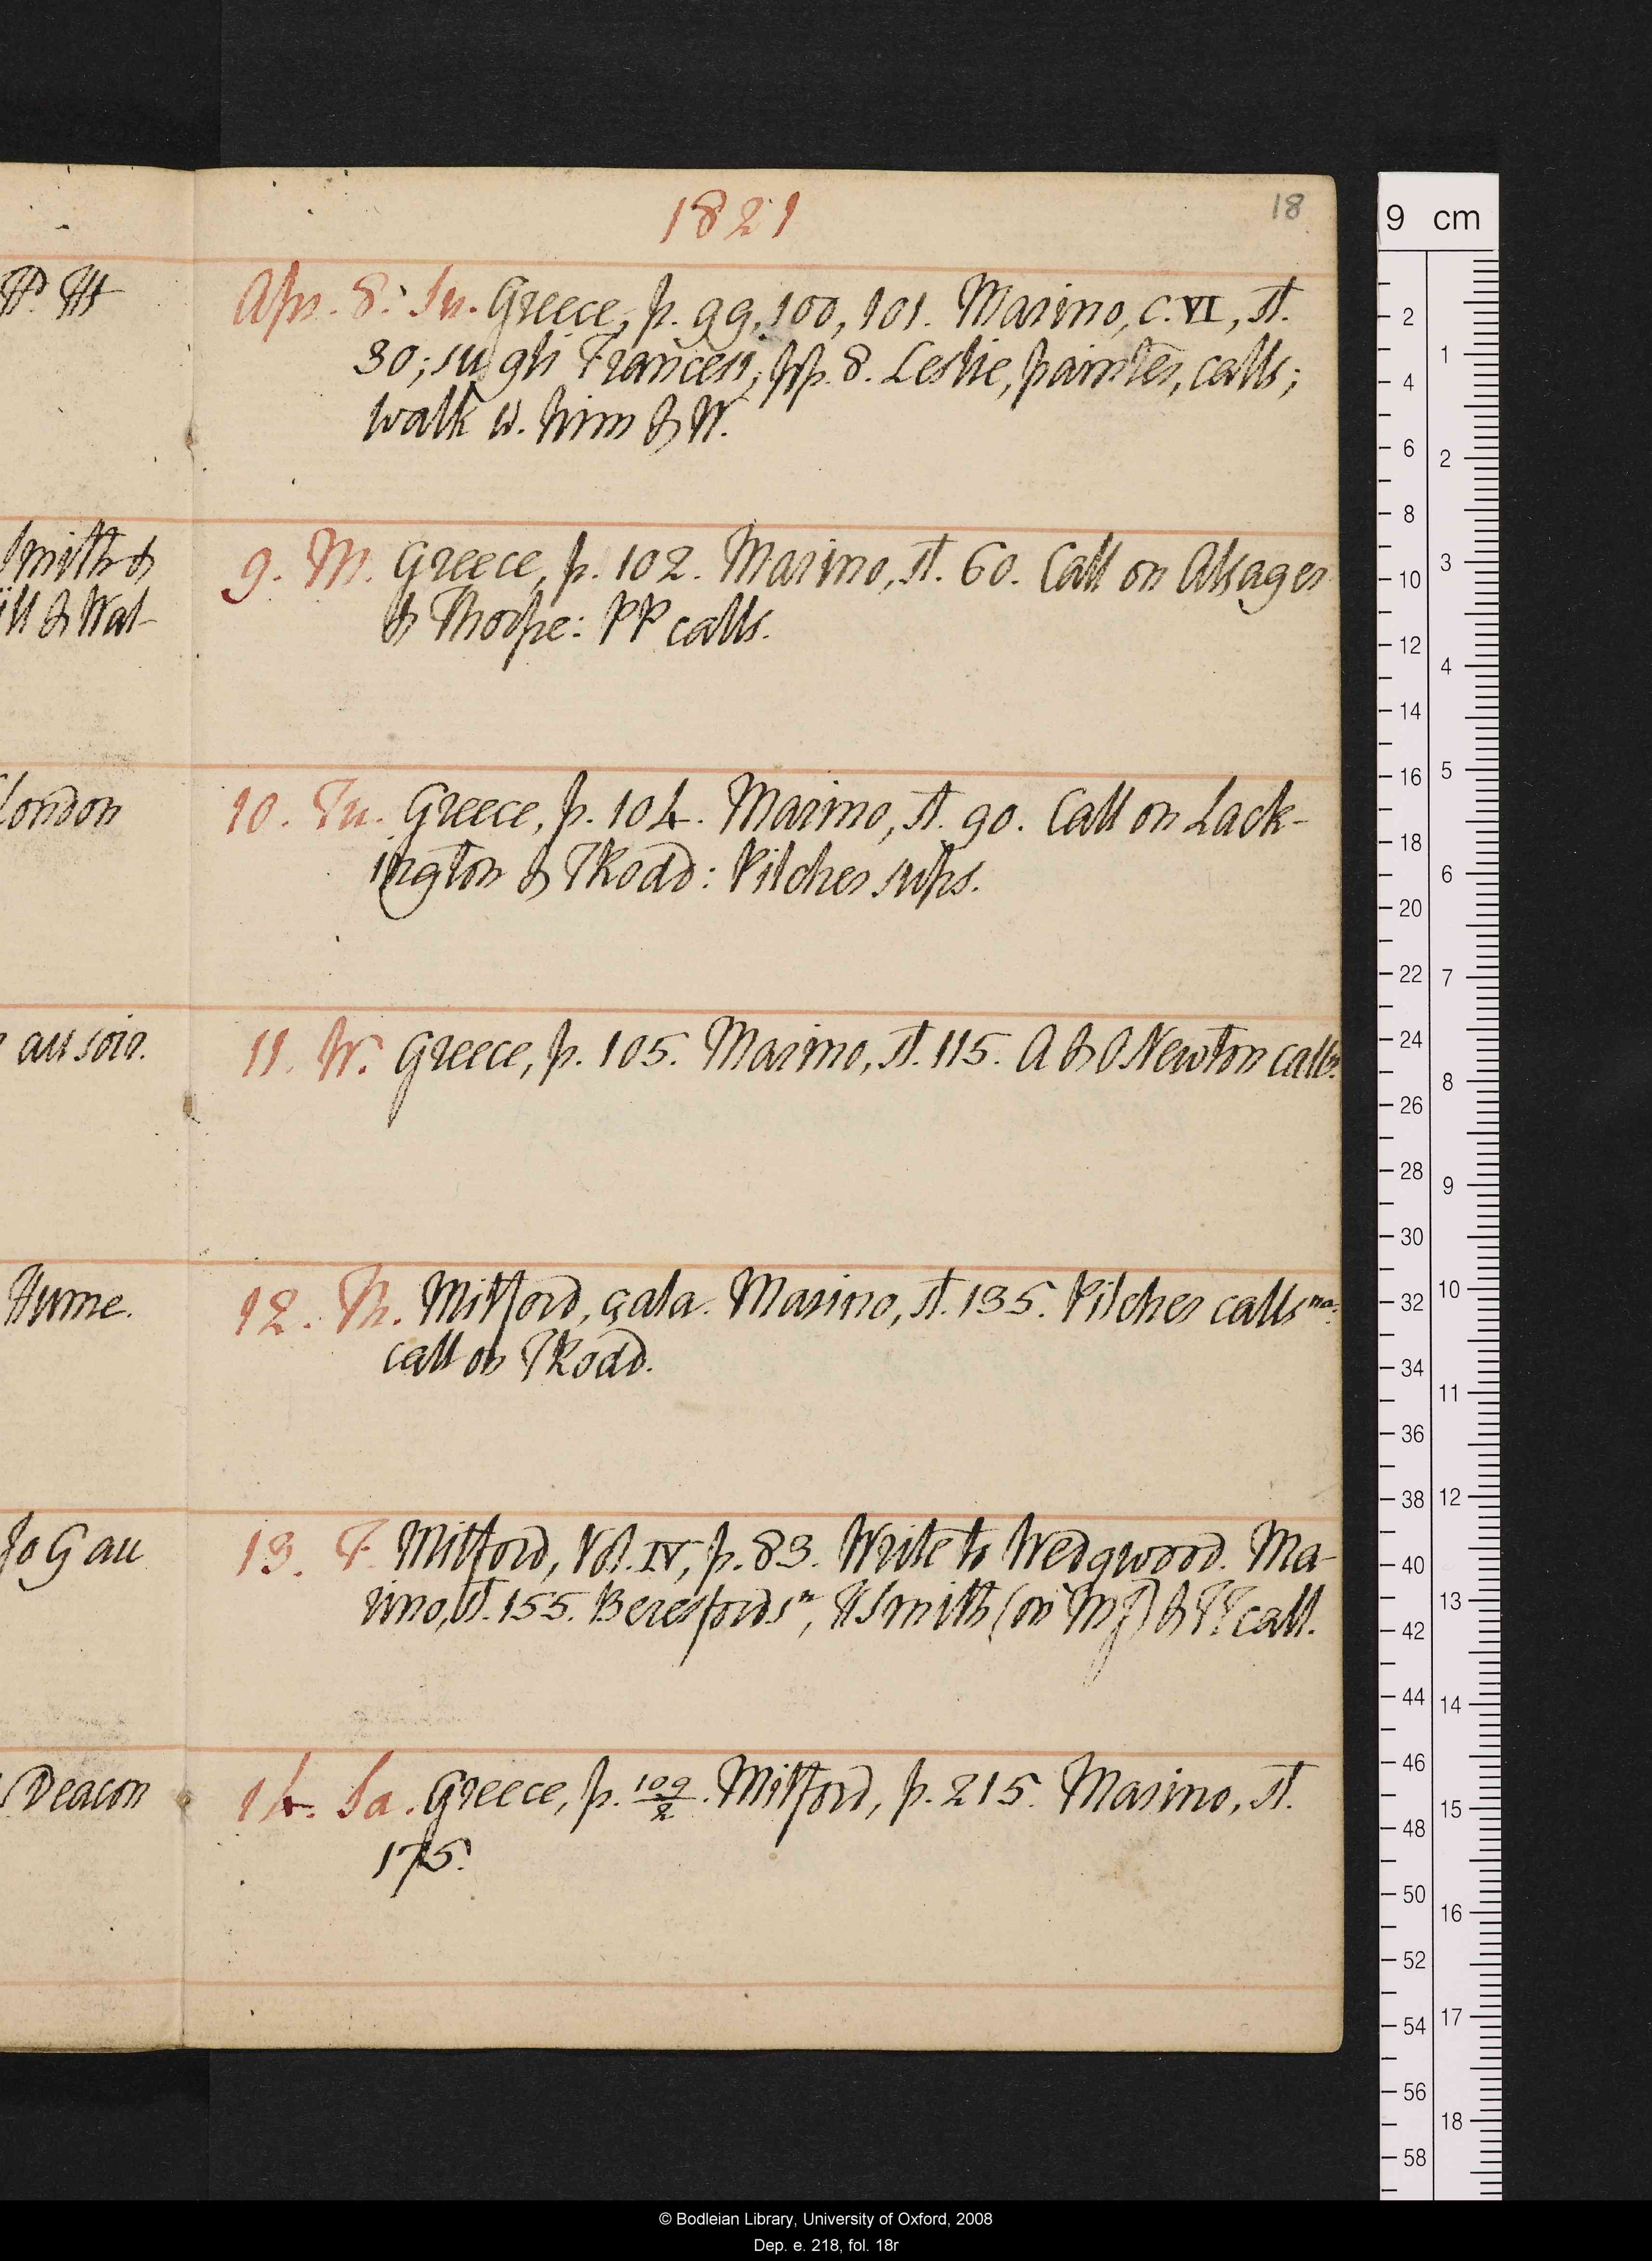 1821
18
Apr. 8. Su. Greece, p. 99, 100, 101. Marino, C. VI, st.
30; sugli Francesi, pp. 8. Leslie, painter, calls;
walk w. him & W.
9. M. Greece, p. 102. Marino, st. 60. Call on Alsager
& Thorpe: PP calls.
10. Tu. Greece, p. 104. Marino, st. 90. Call on Lack-
ington & TRodd: Pilcher sups.
11. W. Greece, p. 105. Marino, st. 115. A & O Newton calls.
12. Th. Mitford, çala. Marino, st. 135. Pilcher calls na:
call on TRodd.
13. F. Mitford, Vol. IV, p. 83. Write to Wedgwood. Ma-
rino, st. 155. Beresford sr, HSmith (on MJ) & call.
14. Sa. Greece, p. 109/2. Mitford, p. 215. Marino, st.
175.
Smith &
ill & Wal-
London
au soir.
Hume.
Jo G au
Deacon
9 cm
2
4
6
8
10
12
14
16
18
20
22
24
26
28
30
32
34
36
38
40
42
44
46
48
50
52
54
56
58
1
2
3
4
5
6
7
8
9
10
11
12
13
14
15
16
17
18
© Bodleian Library, University of Oxford, 2008
Dep. e. 218, fol. 18r